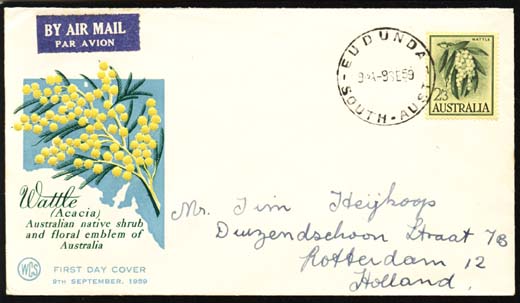 BY AIR MAIL
PAR AVION
EUDUNDA
9-A-9SE59
SOUTH-AUST
WATTLE
2/3
AUSTRALIA
Wattle
(Acacia)
Australian native shrub
and floral emblem of
Australia
WCS
FIRST DAY COVER
9TH SEPTEMBER, 1959
Mr. Tim Heijkoop
Duizendschoon Straat 7B
Rotterdam 12
Holland.